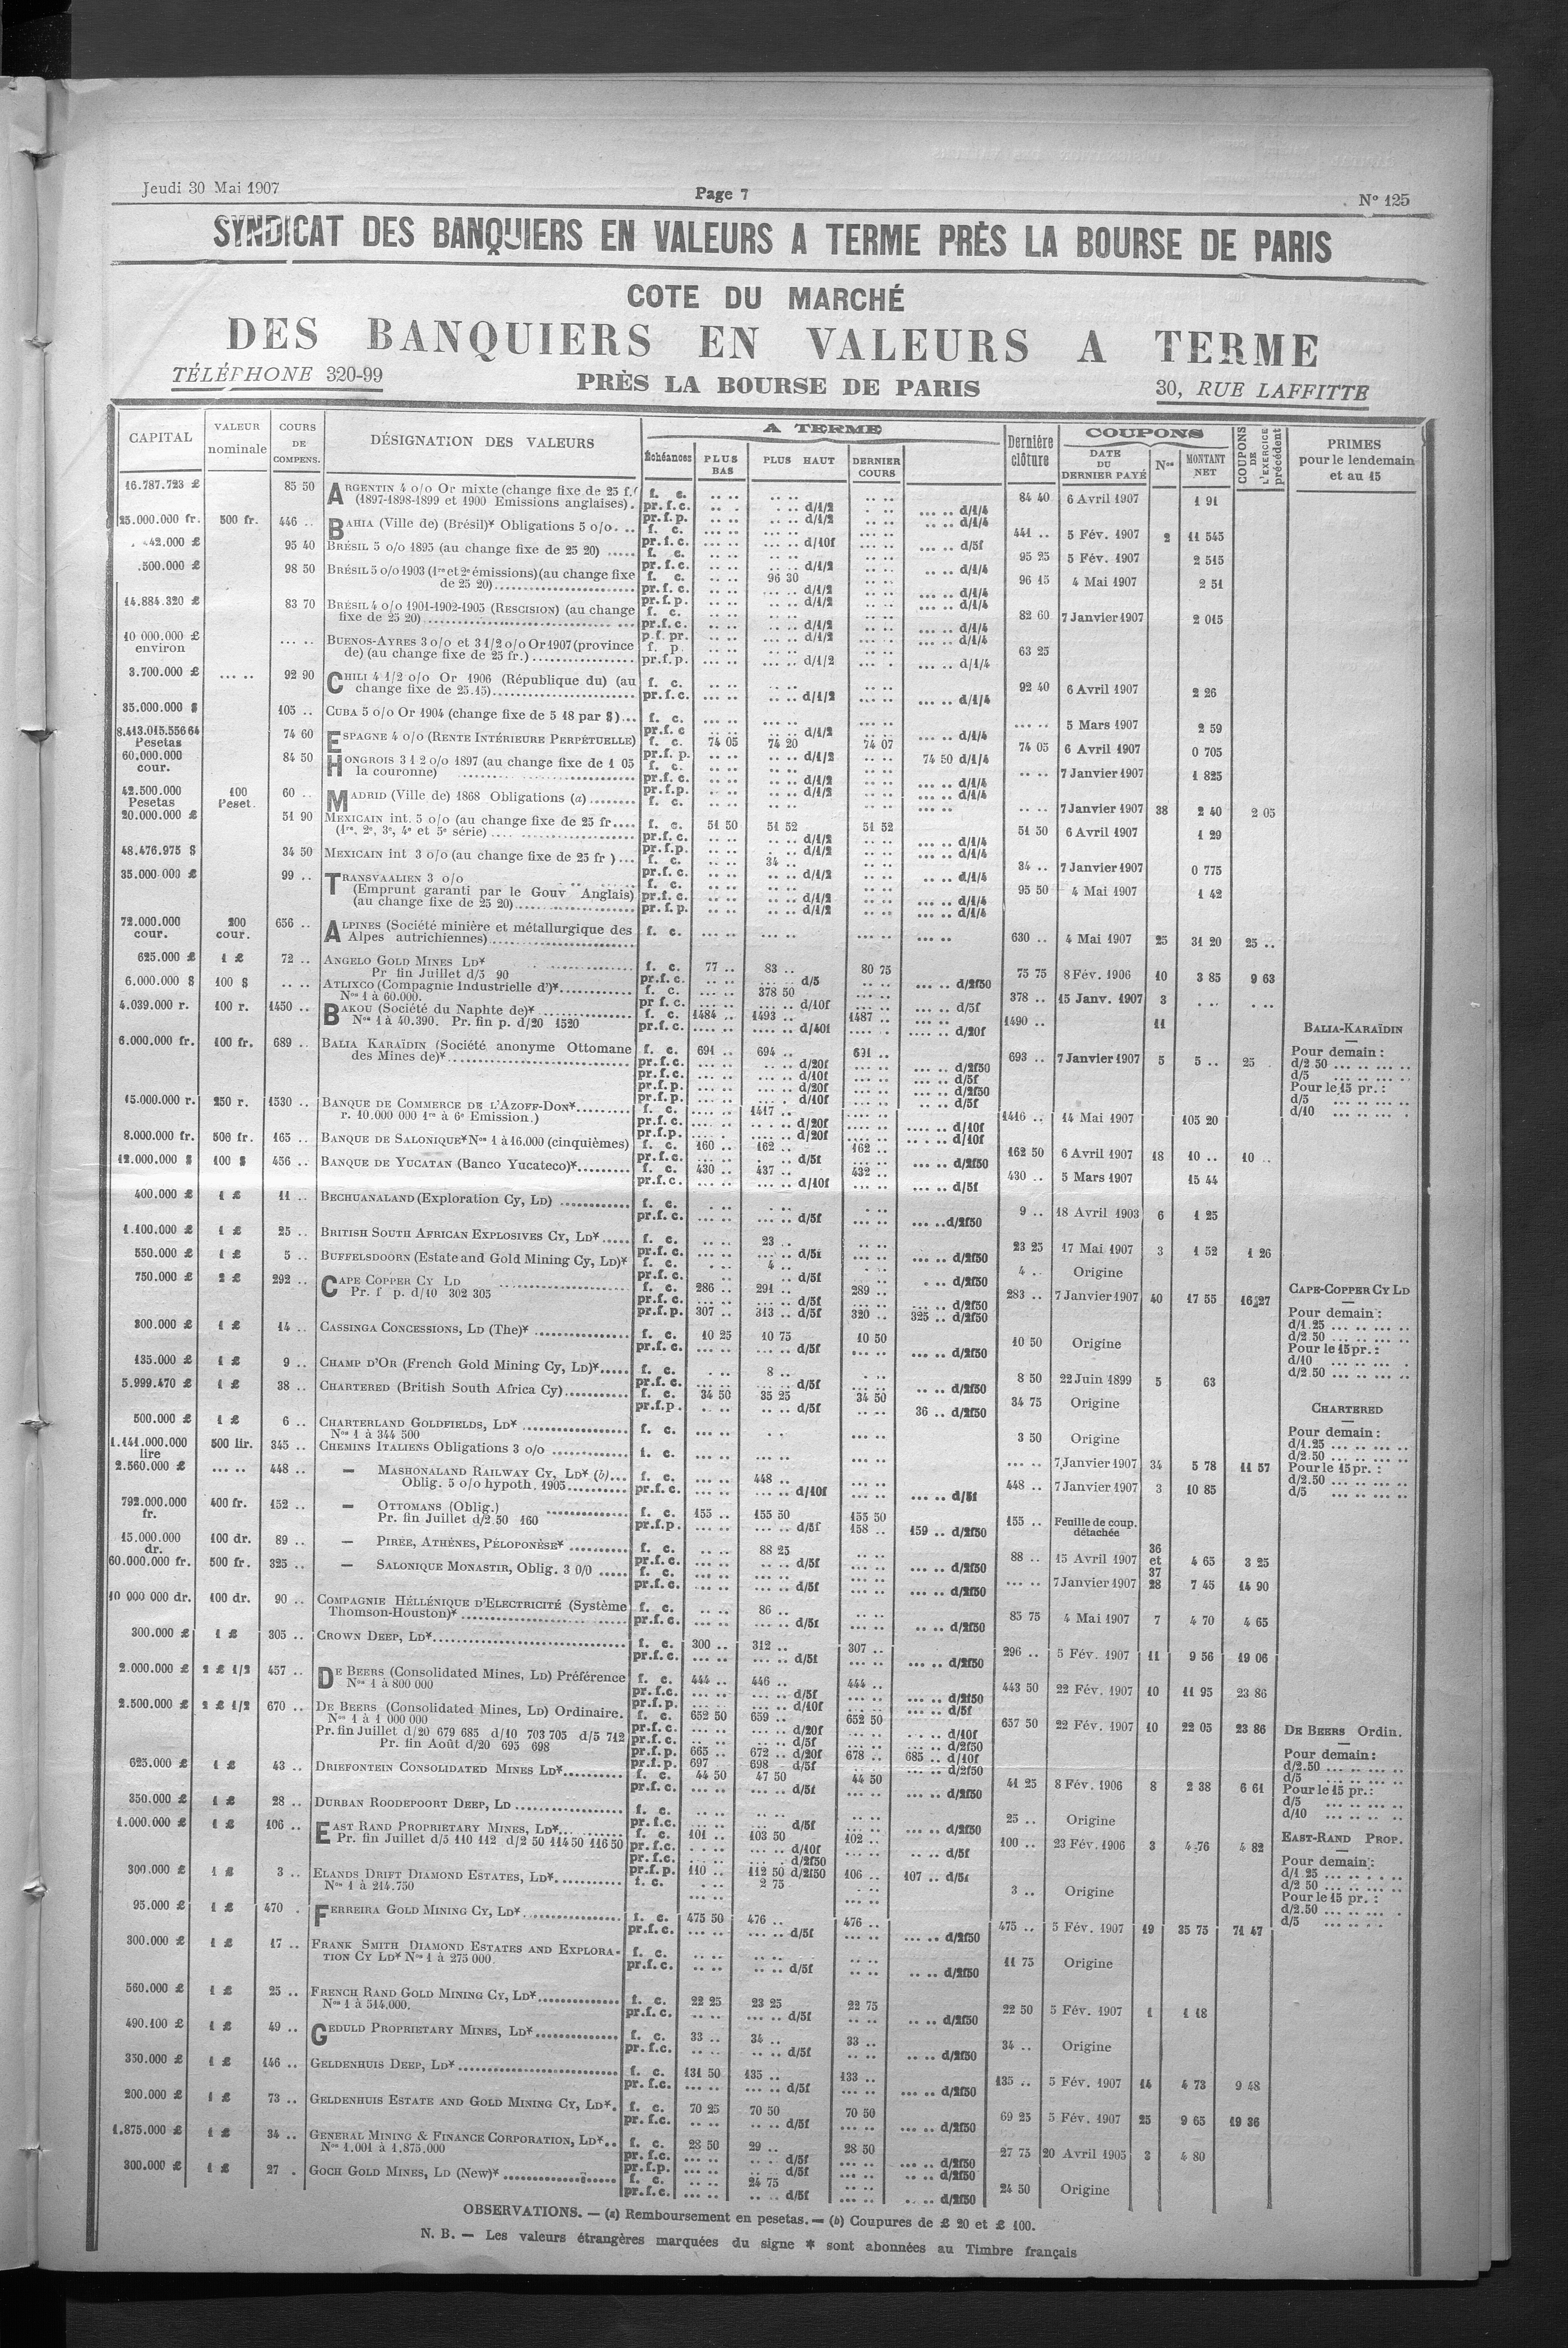 Jeudi 30 Mai 1907
Page 7
N° 125
SYNDICAT DES BANQUIERS EN VALEURS A TERME PRÈS LA BOURSE DE PARIS
COTE DU MARCHÉ
DES BANQUIERS EN VALEURS A TERME
TÉLÉPHONE 320-99
PRÈS LA BOURSE DE PARIS
30, RUE LAFFITTE
CAPITAL
VALEUR nominale
COURS DE COMPENS.
DÉSIGNATION DES VALEURS
A TERME
Échéances
PLUS BAS
PLUS HAUT
DERNIER COURS
Dernière clôture
COUPONS
DATE DU DERNIER PAYÉ
Nos
MONTANT NET
COUPONS DE L'EXERCICE précédent
PRIMES pour le lendemain et au 15
16.787.723 £ 85 50 ARGENTIN 4 o/o Or mixte (change fixe de 25 f. f. c. 84 40 6 Avril 1907 1 91
(1897-1898-1899 et 1900 Emissions anglaises). pr.f.c. d/1/2 d/1/4
25.000.000 fr. 500 fr. 446 .. BAHIA (Ville de) (Brésil)* Obligations 5 o/o. .. f. c. 441 .. 5 Fév. 1907 2 11 545
95 40 BRÉSIL 5 o/o 1895 (au change fixe de 25 20) ..... f. c. 95 25 5 Fév. 1907 2 515
.500.000 £ 98 50 BRÉSIL 5 o/o 1903 (1re et 2e émissions)(au change fixe f. c. 96 30 96 15 4 Mai 1907 2 51
de 25 20)
14.884.320 £ 83 70 BRÉSIL 4 o/o 1901-1902-1905 (RESCISION) (au change f. c. 82 60 7 Janvier 1907 2 015
fixe de 25 20)
10 000.000 £ environ ... .. BUENOS-AYRES 3 o/o et 3 1/2 o/o Or 1907 (province f. p. 63 25
de) (au change fixe de 25 fr.)
3.700.000 £ ... .. 92 90 CHILI 4 1/2 o/o Or 1906 (République du) (au f. c. 92 40 6 Avril 1907 2 26
change fixe de 25.15)
35.000.000 $ 105 .. CUBA 5 o/o Or 1904 (change fixe de 5 18 par $)... f. c. 5 Mars 1907 2 59
8.413.015.556 64 Pesetas 74 60 ESPAGNE 4 o/o (RENTE INTÉRIEURE PERPÉTUELLE) f. c. 74 05 74 20 74 07 74 05 6 Avril 1907 0 705
pr.f.p. d/1/2 74 50 d/1/4
60.000.000 cour. 84 50 HONGROIS 3 1 2 o/o 1897 (au change fixe de 1 05 f. c. 7 Janvier 1907 1 825
la couronne)
42.500.000 Pesetas 100 Peset. 60 .. MADRID (Ville de) 1868 Obligations (a) ........ f. c. 7 Janvier 1907 38 2 40 2 05
20.000.000 £ 51 90 MEXICAIN int. 5 o/o (au change fixe de 25 fr.... f. c. 51 50 51 52 51 52 51 50 6 Avril 1907 1 29
(1re. 2e, 3e, 4e et 5e série)
48.476.975 $ 34 50 MEXICAIN int 3 o/o (au change fixe de 25 fr )... f. c. 34 .. 34 .. 7 Janvier 1907 0 775
35.000 000 £ 99 .. TRANSVAALIEN 3 o/o f. c. 95 50 4 Mai 1907 1 42
(Emprunt garanti par le Gouv Anglais) pr.f.c. d/1/2 d/1/4
(au change fixe de 25 20) pr.f.p. d/1/2 d/1/4
72.000.000 cour. 200 cour. 656 .. ALPINES (Société minière et métallurgique des f. c. 630 .. 4 Mai 1907 25 31 20 25 ..
Alpes autrichiennes)
625.000 £ 1 £ 72 .. ANGELO GOLD MINES LD* f. c. 77 .. 83 .. 80 75 75 75 8 Fév. 1906 10 3 85 9 63
Pr fin Juillet d/5 90 pr.f.c. d/5 d/2f50
6.000.000 $ 100 $ .. .. ATLIXCO (Compagnie Industrielle d')* f. c. 378 50 378 .. 15 Janv. 1907 3
Nos 1 à 60.000. pr f.c. d/10f d/5f
4.039.000 r. 100 r. 1450 .. BAKOU (Société du Naphte de)* f. c. 1484 .. 1493 .. 1487 .. 1490 .. 11
Nos 1 à 40.390. Pr. fin p. d/20 1520 pr.f.c. d/40f d/20f
6.000.000 fr. 100 fr. 689 .. BALIA KARAÏDIN (Société anonyme Ottomane f. c. 691 .. 694 .. 691 .. 693 .. 7 Janvier 1907 5 5 .. 25
des Mines de)* pr.f.c. d/20f d/2f50
pr.f.c. d/10f d/5f
pr.f.p. d/20f d/2f50
pr.f.p. d/10f d/5f
15.000.000 r. 250 r. 1530 .. BANQUE DE COMMERCE DE L'AZOFF-DON* f. c. 1417 .. 1416 .. 14 Mai 1907 105 20
r. 10.000 000 1re à 6e Emission.) pr.f.c. d/20f d/10f
pr.f.p. d/20f d/10f
8.000.000 fr. 500 fr. 165 .. BANQUE DE SALONIQUE* Nos 1 à 16.000 (cinquièmes) f. c. 160 .. 162 .. 162 .. 162 50 6 Avril 1907 18 10 .. 10 ..
pr.f.c. d/5f d/2f50
12.000.000 $ 100 $ 456 .. BANQUE DE YUCATAN (Banco Yucateco)* f. c. 430 .. 437 .. 432 .. 430 .. 5 Mars 1907 15 44
pr.f.c. d/10f d/5f
400.000 £ 1 £ 11 .. BECHUANALAND (Exploration Cy, LD) f. c. 9 .. 18 Avril 1903 6 1 25
pr.f.c. d/5f d/2f50
1.100.000 £ 1 £ 25 .. BRITISH SOUTH AFRICAN EXPLOSIVES CY, LD* f. c. 23 .. 23 25 17 Mai 1907 3 1 52 1 26
pr.f.c. d/5f d/2f50
550.000 £ 1 £ 5 .. BUFFELSDOORN (Estate and Gold Mining Cy, LD)* f. c. 4 .. 4 .. Origine
pr.f.c. d/5f d/2f50
750.000 £ 2 £ 292 .. CAPE COPPER CY LD f. c. 286 .. 291 .. 289 .. 283 .. 7 Janvier 1907 40 17 55 16 27
Pr. f p. d/10 302 305 pr.f.c. d/5f d/2f50
pr.f.p. 307 .. 313 .. d/5f 320 .. 325 .. d/2f50
300.000 £ 1 £ 14 .. CASSINGA CONCESSIONS, LD (The)* f. c. 10 25 10 75 10 50 10 50 Origine
pr.f.c. d/5f d/2f50
135.000 £ 1 £ 9 .. CHAMP D'OR (French Gold Mining Cy, LD)* f. c. 8 .. 8 50 22 Juin 1899 5 63
pr.f.c. d/5f d/2f50
5.999.470 £ 1 £ 38 .. CHARTERED (British South Africa Cy) f. c. 34 50 35 25 34 50 34 75 Origine
pr.f.p. d/5f 36 .. d/2f50
500.000 £ 1 £ 6 .. CHARTERLAND GOLDFIELDS, LD* f. c. 3 50 Origine
Nos 1 à 344 500
1.141.000.000 lire 500 lir. 345 .. CHEMINS ITALIENS Obligations 3 o/o f. c. 7 Janvier 1907 34 5 78 11 57
2.560.000 £ ... .. 448 .. — MASHONALAND RAILWAY CY, LD* (b)... f. c. 448 .. 448 .. 7 Janvier 1907 3 10 85
Oblig. 5 o/o hypoth. 1905 pr.f.c. d/10f d/5f
792.000.000 fr. 400 fr. 152 .. — OTTOMANS (Oblig.) f. c. 155 .. 155 50 155 50 155 .. Feuille de coup. détachée
Pr. fin Juillet d/2.50 160 pr.f.p. d/5f 158 .. 159 .. d/2f50
15.000.000 dr. 100 dr. 89 .. — PIRÉE, ATHÈNES, PÉLOPONÈSE* f. c. 88 25 88 .. 15 Avril 1907 36 et 37 4 65 3 25
pr.f.c. d/5f d/2f50
60.000.000 fr. 500 fr. 325 .. — SALONIQUE MONASTIR, Oblig. 3 0/0 f. c. 7 Janvier 1907 28 7 45 14 90
pr.f.c. d/5f d/2f50
10 000 000 dr. 100 dr. 90 .. COMPAGNIE HÉLLÉNIQUE D'ELECTRICITÉ (Système f. c. 86 .. 85 75 4 Mai 1907 7 4 70 4 65
Thomson-Houston)* pr.f.c. d/5f d/2f50
300.000 £ 1 £ 305 .. CROWN DEEP, LD* f. c. 300 .. 312 .. 307 .. 296 .. 5 Fév. 1907 11 9 56 19 06
pr.f.c. d/5f d/2f50
2.000.000 £ 2 £ 1/2 457 .. DE BEERS (Consolidated Mines, LD) Préférence f. c. 444 .. 446 .. 444 .. 443 50 22 Fév. 1907 10 11 95 23 86
Nos 1 à 800 000 pr.f.c. d/5f d/2f50
pr.f.p. d/10f d/5f
2.500.000 £ 2 £ 1/2 670 .. DE BEERS (Consolidated Mines, LD) Ordinaire. f. c. 652 50 659 .. 652 50 657 50 22 Fév. 1907 10 22 05 23 86
Nos 1 à 1 000 000 pr.f.c. d/20f d/10f
Pr. fin Juillet d/20 679 685 d/10 703 705 d/5 712 pr.f.c. d/5f d/2f50
Pr. fin Août d/20 695 698 pr.f.p. 665 .. 672 .. d/20f 678 .. 685 .. d/10f
pr.f.p. 697 698 .. d/5f d/2f50
625.000 £ 1 £ 43 .. DRIEFONTEIN CONSOLIDATED MINES LD* f. c. 44 50 47 50 44 50 41 25 8 Fév. 1906 8 2 38 6 61
pr.f.c. d/5f d/2f50
350.000 £ 1 £ 28 .. DURBAN ROODEPOORT DEEP, LD f. c. 25 .. Origine
d/5f d/2f50
1.000.000 £ 1 £ 106 .. EAST RAND PROPRIETARY MINES, LD* f. c. 101 .. 103 50 102 .. 100 .. 23 Fév. 1906 3 4 76 4 82
Pr. fin Juillet d/5 110 112 d/2 50 114 50 116 50 pr.f.c. d/10f d/5f
pr.f.c. d/2f50
pr.f.p. 110 .. 112 50 d/2f50 106 .. 107 .. d/5f
300.000 £ 1 £ 3 .. ELANDS DRIFT DIAMOND ESTATES, LD* f. c. 2 75 3 .. Origine
Nos 1 à 214.750
95.000 £ 1 £ 470 . FERREIRA GOLD MINING CY, LD* f. c. 475 50 476 .. 476 .. 475 .. 5 Fév. 1907 19 35 75 71 47
pr.f.c. d/5f d/2f50
300.000 £ 1 £ 17 .. FRANK SMITH DIAMOND ESTATES AND EXPLORA- f. c. 11 75 Origine
TION CY LD* Nos 1 à 275 000 pr.f.c. d/5f d/2f50
560.000 £ 1 £ 25 .. FRENCH RAND GOLD MINING CY, LD* f. c. 22 25 23 25 22 75 22 50 5 Fév. 1907 1 1 18
Nos 1 à 514.000. pr.f.c. d/5f d/2f50
490.100 £ 1 £ 49 .. GEDULD PROPRIETARY MINES, LD* f. c. 33 .. 34 .. 33 .. 34 .. Origine
pr.f.c. d/5f d/2f50
350.000 £ 1 £ 146 .. GELDENHUIS DEEP, LD* f. c. 131 50 135 .. 133 .. 135 .. 5 Fév. 1907 14 4 73 9 48
pr.f.c. d/5f d/2f50
200.000 £ 1 £ 73 .. GELDENHUIS ESTATE AND GOLD MINING CY, LD*. f. c. 70 25 70 50 70 50 69 25 5 Fév. 1907 25 9 65 19 36
pr.f.c. d/5f d/2f50
1.875.000 £ 1 £ 34 .. GENERAL MINING & FINANCE CORPORATION, LD*.. f. c. 28 50 29 .. 28 50 27 75 20 Avril 1905 3 4 80
Nos 1.001 à 1.875.000 pr.f.c. d/5f d/2f50
pr.f.p. d/5f d/2f50
300.000 £ 1 £ 27 . GOCH GOLD MINES, LD (New)* f. c. 24 75 24 50 Origine
pr.f.c. d/5f d/2f50
BALIA-KARAÏDIN
Pour demain :
d/2.50
d/5
Pour le 15 pr. :
d/5
d/10
CAPE-COPPER CY LD
Pour demain :
d/1.25
d/2.50
Pour le 15 pr. :
d/10
d/2.50
CHARTERED
Pour demain :
d/1.25
d/2.50
Pour le 15 pr. :
d/2.50
d/5
DE BEERS Ordin.
Pour demain :
d/2.50
d/5
Pour le 15 pr. :
d/5
d/10
EAST-RAND PROP.
Pour demain :
d/1 25
d/2 50
Pour le 15 pr. :
d/2.50
d/5
OBSERVATIONS. — (a) Remboursement en pesetas. — (b) Coupures de £ 20 et £ 100.
N. B. — Les valeurs étrangères marquées du signe * sont abonnées au Timbre français